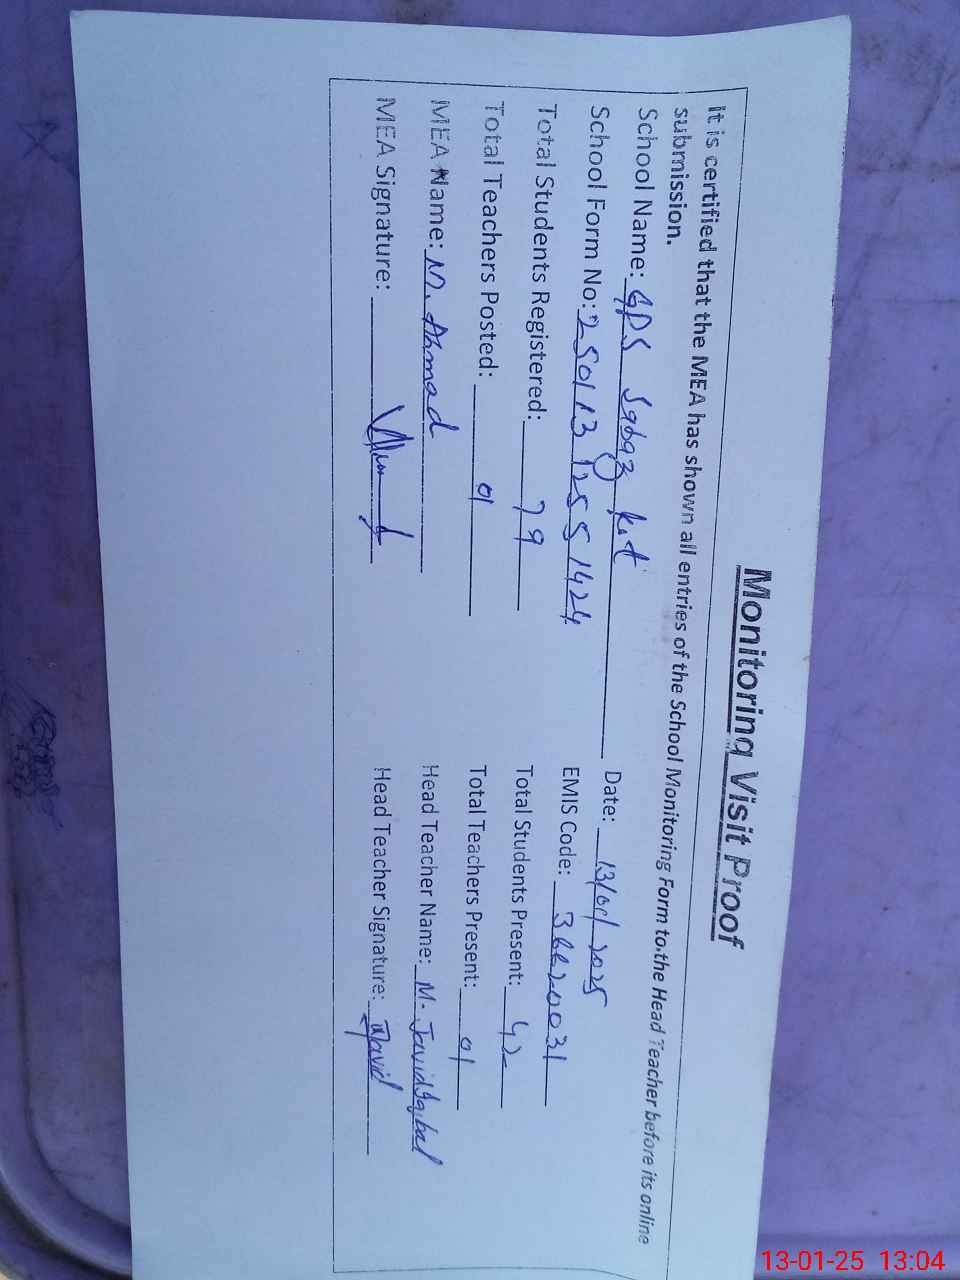 Monitoring Visit Proof
It is certified that the MEA has shown all entries of the School Monitoring Form to the Head Teacher before its online
submission.
School Name: GPS kot Date: 13/01/2025
School Form No: 250113 1255 1424 EMIS Code: 36620031
Total Students Registered: 79 Total Students Present: 42
Total Teachers Posted: 01 Total Teachers Present: 01
MEA Name: M. Ahmad Head Teacher Name: M. Javid Iqbal
MEA Signature: Head Teacher Signature: Javid
13-01-25 13:04